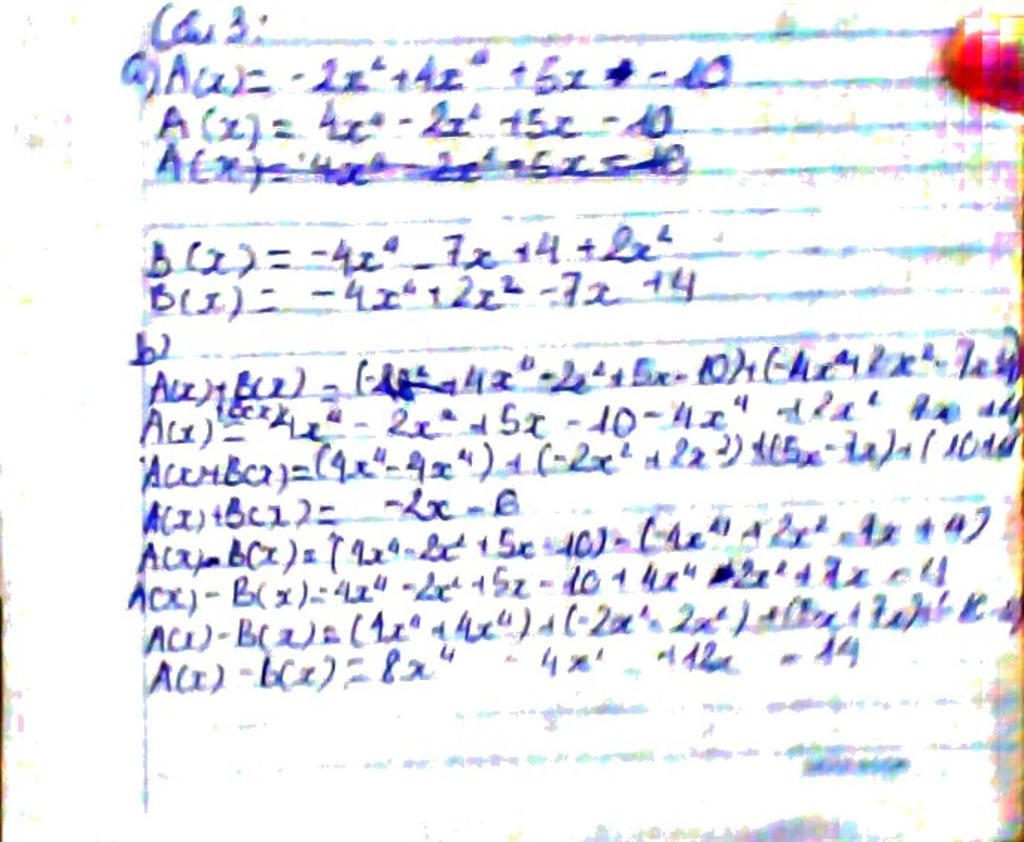 Câu 3:
a) A(x) = -2x² + 4x⁴ + 5x - 10
A(x) = 4x⁴ - 2x² + 5x - 10
A(x) = 4x⁴ - 2x² + 5x - 10
B(x) = -4x⁴ - 7x + 4 + 2x²
B(x) = -4x⁴ + 2x² - 7x + 4
b)
A(x) + B(x) = ( 4x⁴ - 2x² + 5x - 10) + (-4x⁴ + 2x² - 7x + 4)
A(x) + B(x) = 4x⁴ - 2x² + 5x - 10 - 4x⁴ + 2x² 7x + 4
A(x) + B(x) = (4x⁴ - 4x⁴) + (-2x² + 2x²) + (5x - 7x) + ( 10 + 4
A(x) + B(x) = -2x - 6
A(x) - B(x) = (4x⁴ - 2x² + 5x - 10) - (-4x⁴ + 2x² - 7x + 4)
A(x) - B(x) = 4x⁴ - 2x² + 5x - 10 + 4x⁴ - 2x² + 7x - 4
A(x) - B(x) = (4x⁴ + 4x⁴) + (-2x² - 2x²) + (5x + 7x)
A(x) - B(x) = 8x⁴ - 4x² + 12x - 14